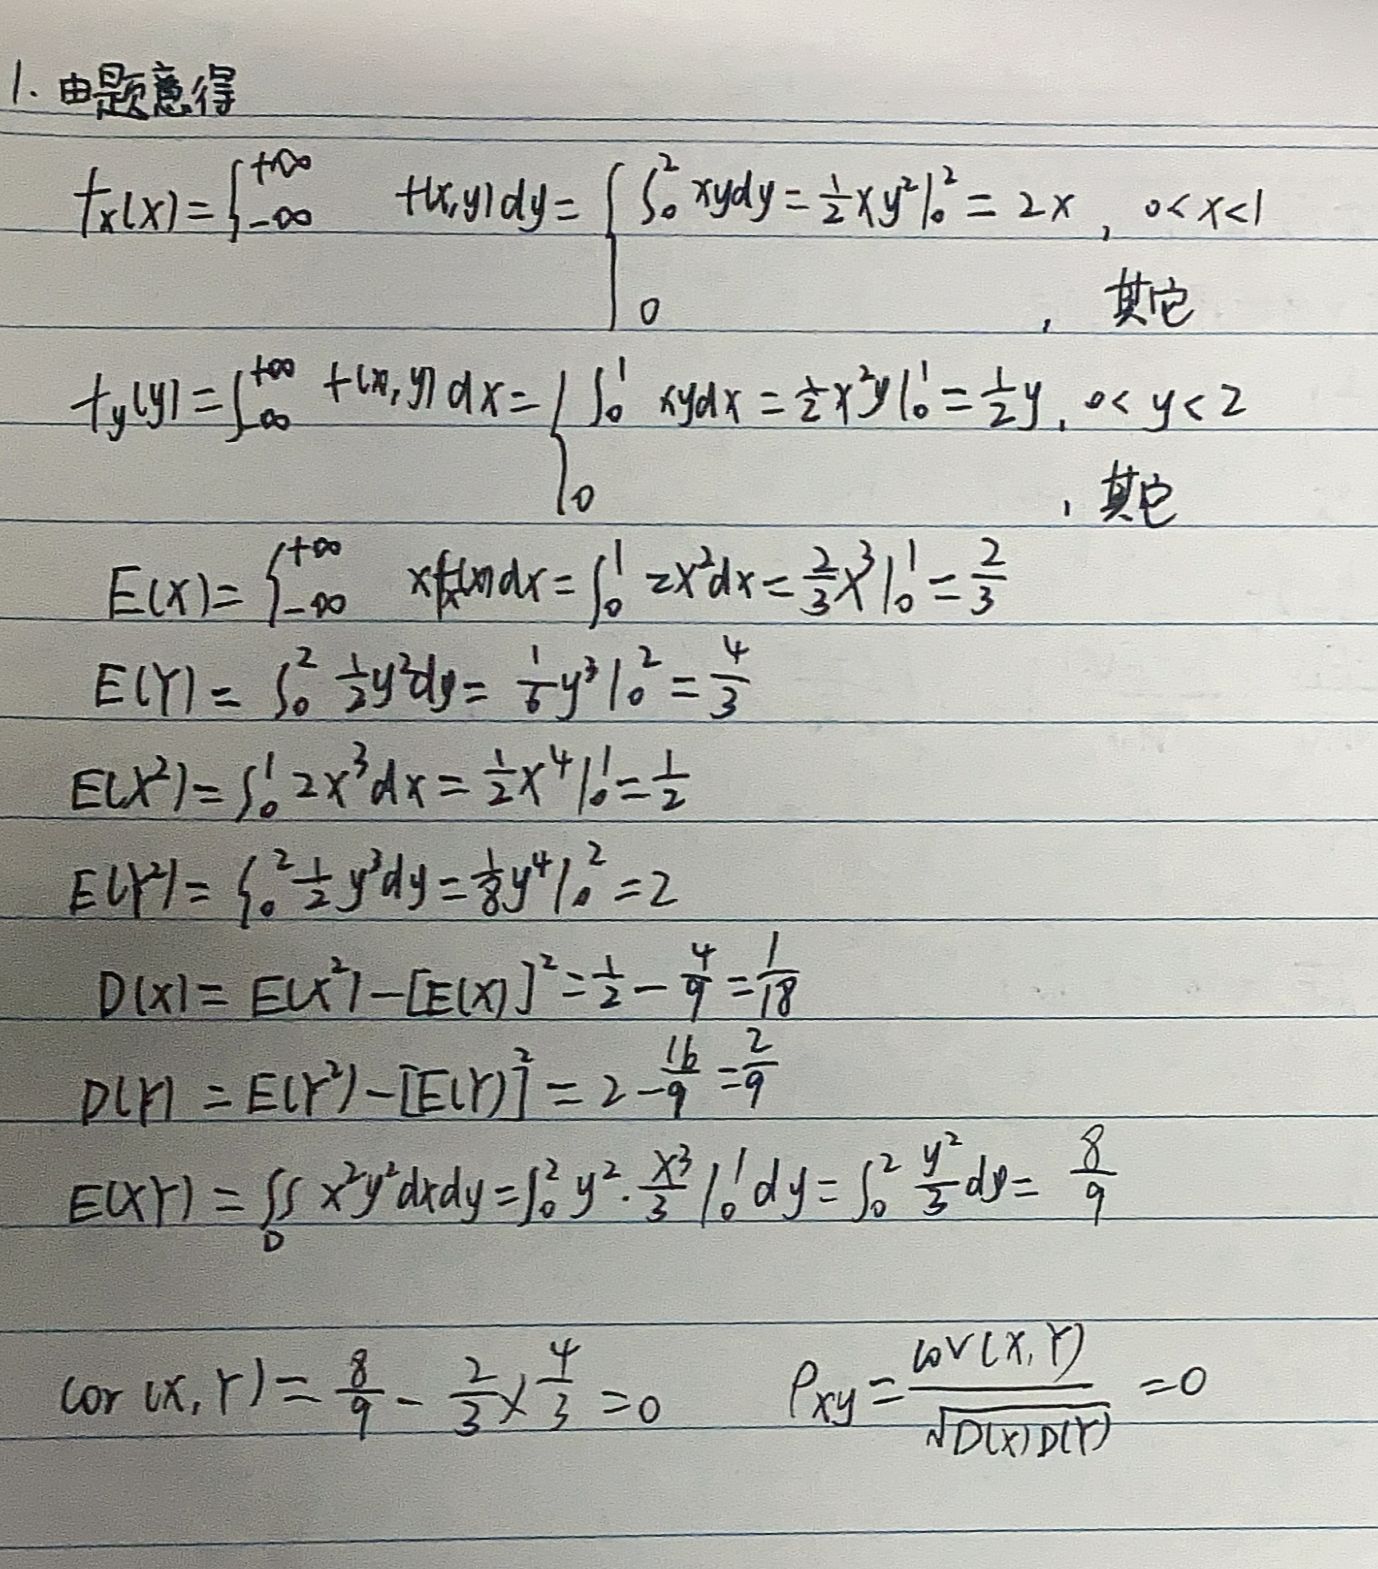 1. 由题意得
fx(x)=∫₋∞⁺∞ f(x,y)dy={∫₀² xydy=½xy²|₀²=2x, 0<x<1
0, 其它
fy(y)=∫₋∞⁺∞ f(x,y)dx={∫₀¹ xydx=½x²y|₀¹=½y, 0<y<2
0, 其它
E(X)=∫₋∞⁺∞ xfx(x)dx=∫₀¹ 2x²dx=2/3x³|₀¹=2/3
E(Y)=∫₀² ½y²dy=1/6y³|₀²=4/3
E(X²)=∫₀¹ 2x³dx=½x⁴|₀¹=1/2
E(Y²)=∫₀² ½y³dy=⅛y⁴|₀²=2
D(X)=E(X²)-[E(X)]²=1/2-4/9=1/18
D(Y)=E(Y²)-[E(Y)]²=2-16/9=2/9
E(XY)=∬D x²y²dxdy=∫₀² y²·x³/3|₀¹dy=∫₀² y²/3dy=8/9
cor(X,Y)=8/9-2/3×4/3=0 ρxy=cov(X,Y)/√D(X)D(Y)=0